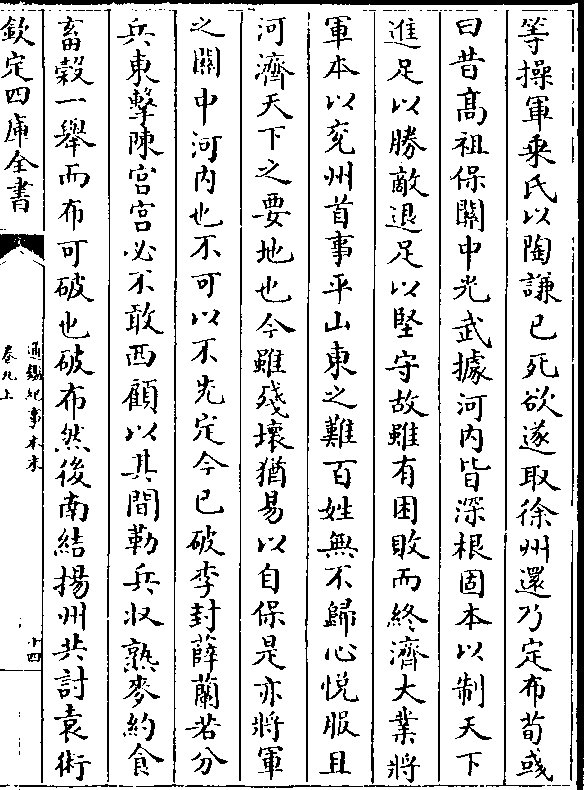 等操軍乗氏以陶謙已死欲遂取徐州還乃定布荀彧
曰昔髙祖保關中光武據河内皆深根固本以制天下
進足以勝敵退足以堅守故雖有困敗而終濟大業將
軍本以兖州首事平山東之難百姓無不歸心悅服且
河濟天下之要地也今雖殘壞猶易以自保是亦將軍
之關中河内也不可以不先定今已破李封薛蘭若分
兵東擊陳宫宫必不敢西顧以其間勒兵收熟麥約食
畜榖一舉而布可破也破布然後南結揚州共討袁術
欽定四庫全書
通鑑紀事本末
卷九上
十四